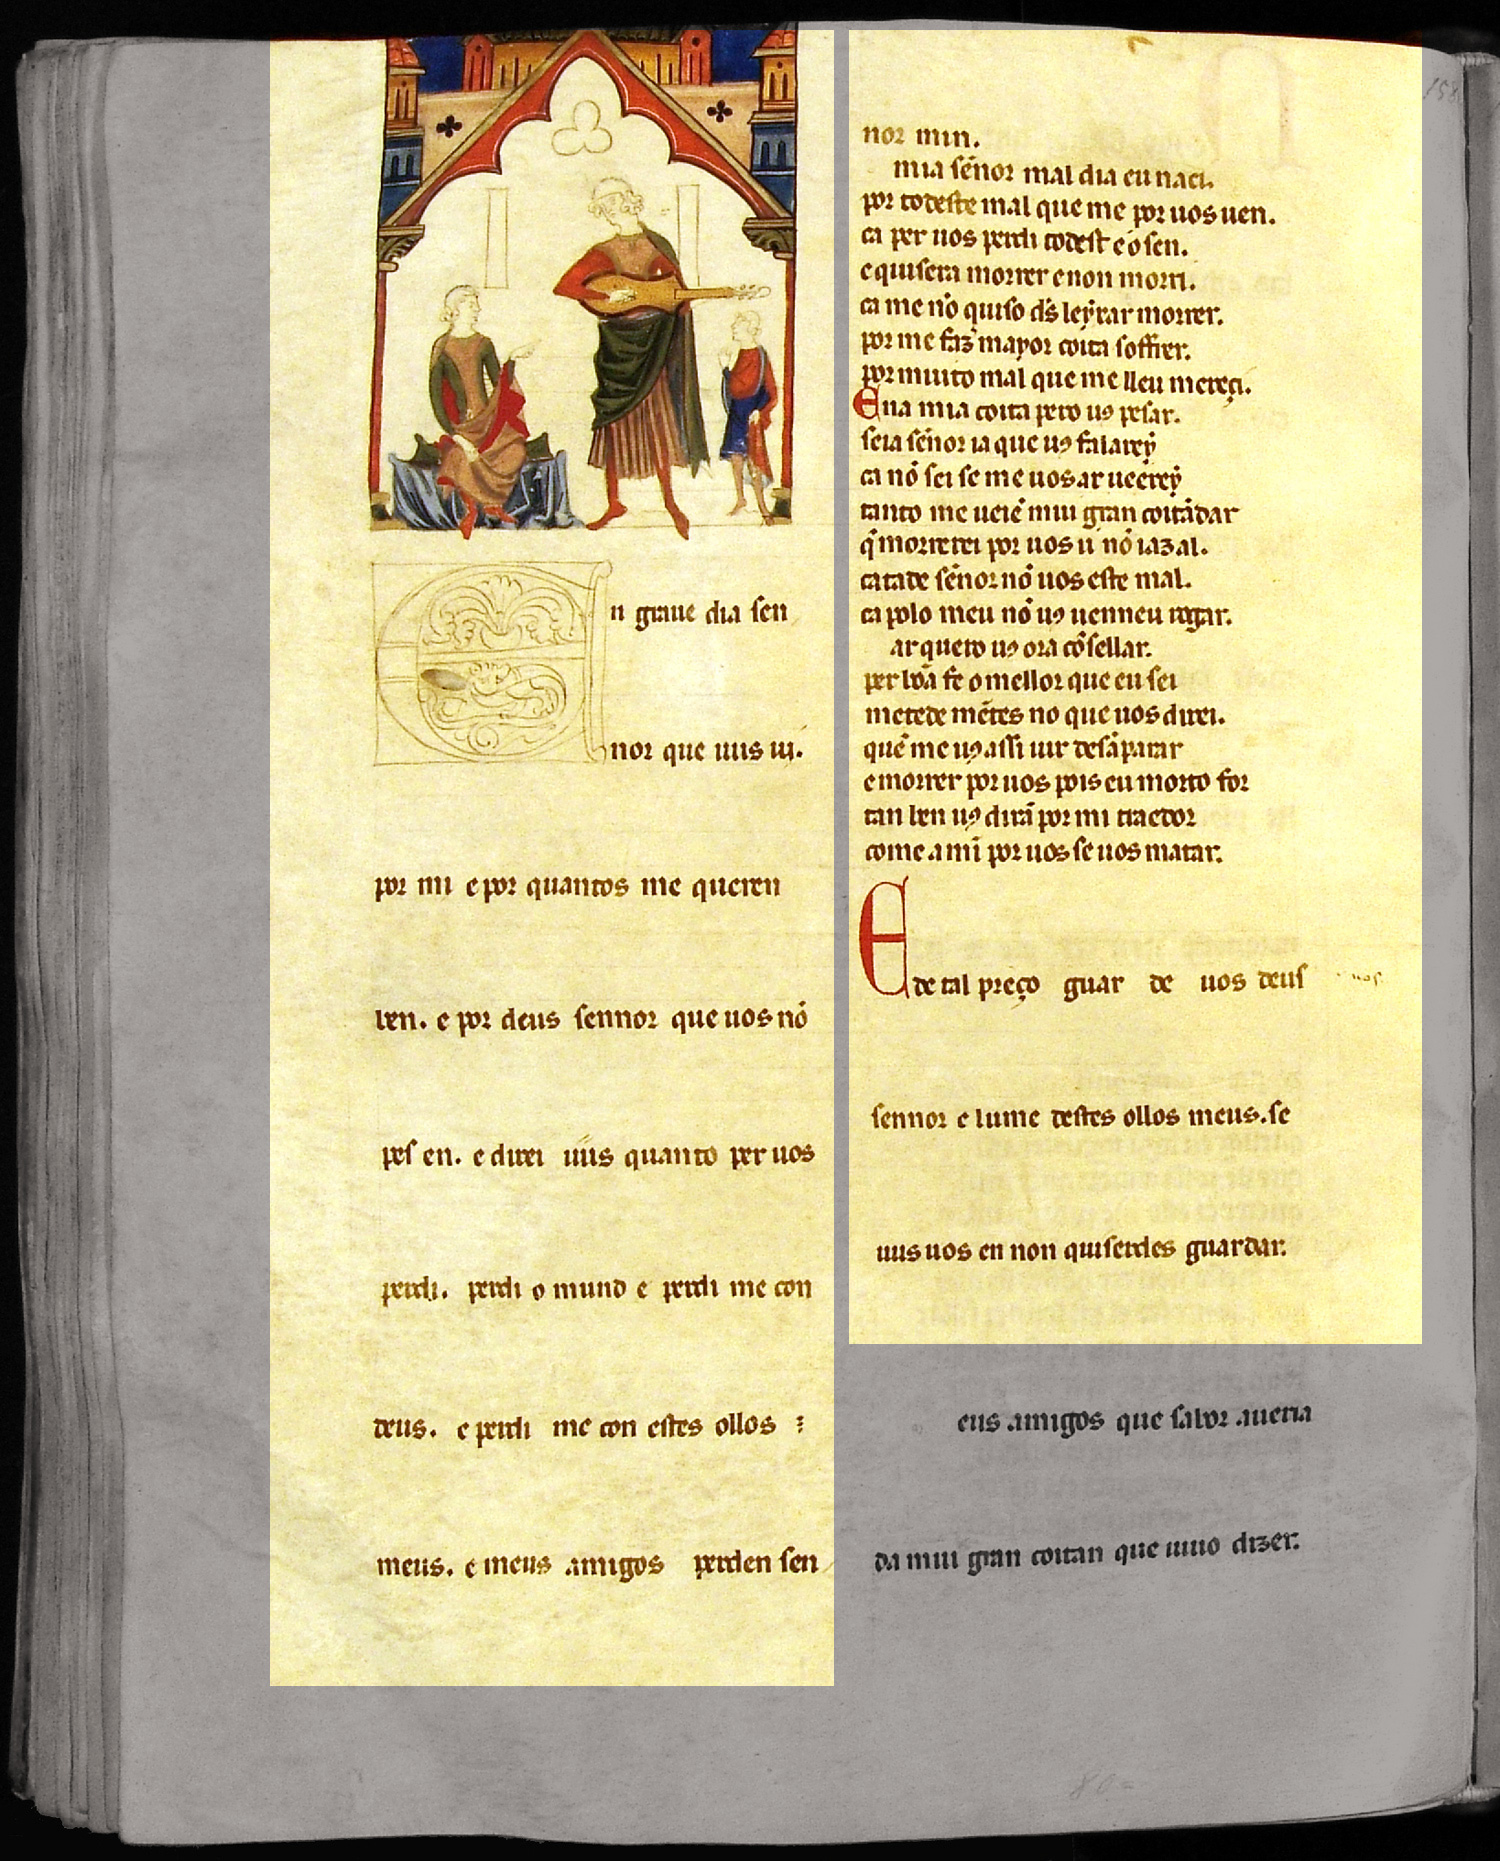 n graue dia sen
nor que uus ui.
por mi e por quantos me queren
ben. e por deus sennor que uos nõ
pes en. e direi uus quanto per uos
perdi. perdi o mund e perdi me con
deus. e perdi me con estes ollos
meus. e meus amigos perden sen
nor min.
mia sẽnor mal dia eu naci.
por todeste mal que me por uos uen.
ca per uos perdi todest e o sen.
e quisera morrer e non morri.
ca me nõ quiso d̃s leyxar morrer.
por me fazˀ mayor coita soffrer.
por muito mal que me lleu mereçi.
Ena mia coita pero uꝯ pesar.
seia sẽnor ia que uꝯ falarey
ca nõ sei se me uos ar ueerey
tanto me ueiẽ miu gran coitãdar
q̃ morrerei por uos u nõ iaz al.
catade sẽnor nõ uos este mal.
ca polo meu nõ uꝯ uenneu rogar.
ar quero uꝯ ora cõsellar.
per bõa fe o mellor que eu sei
metede mẽtes no que uos direi.
quẽ me uꝯ assi uir desãparar
e morrer por uos pois eu morto for
tan ben uꝯ dirã por mi traedor
come a mĩ por uos se uos matar.
E de tal preço guar de uos deus
sennor e lume destes ollos meus. se
uus uos en non quiserdes guardar.
eus amigos que sabor aueria
da miu gran coitan que uiuo dizer.